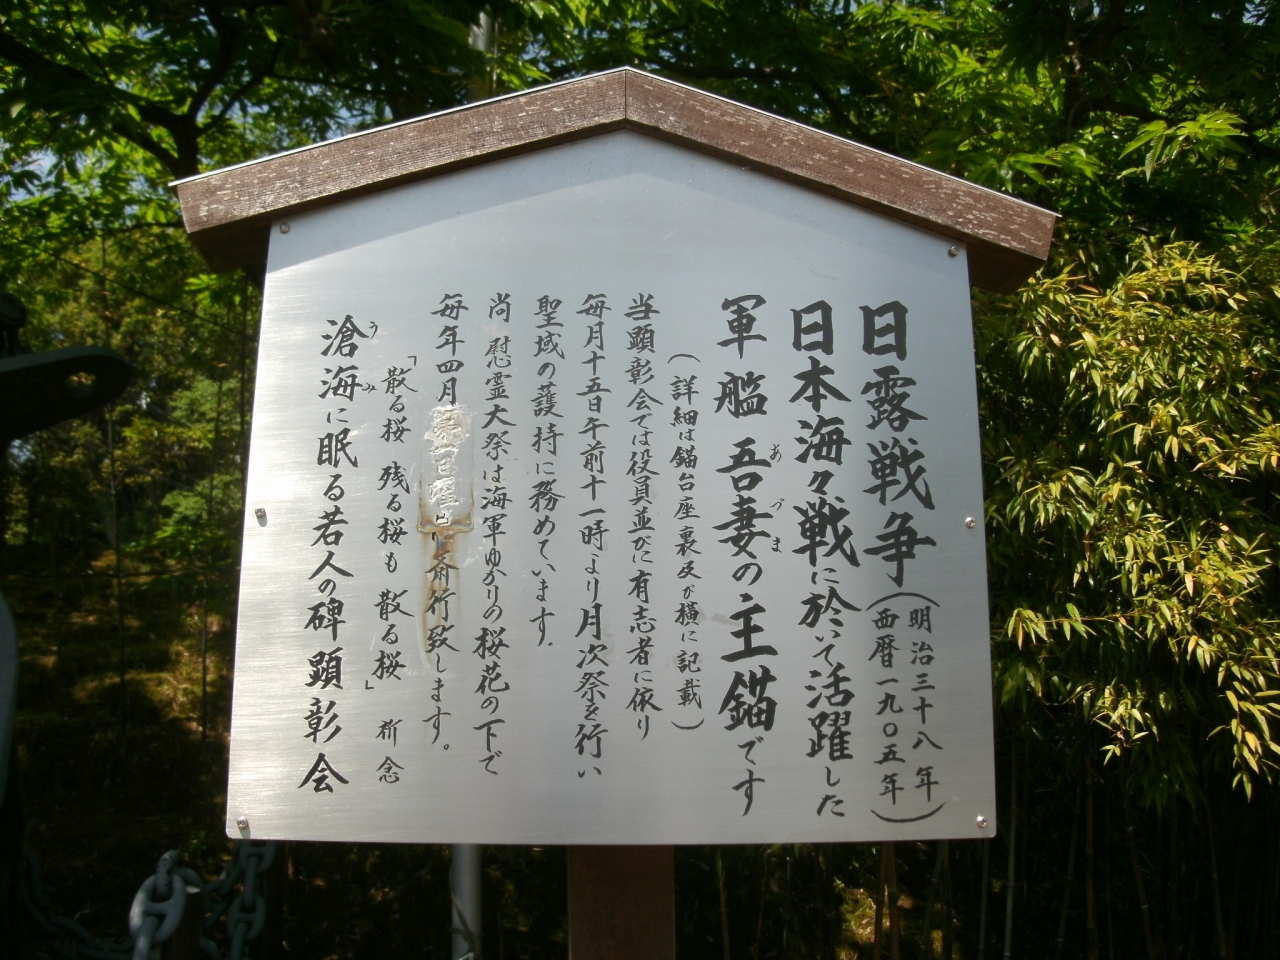 日露戦争(明治三十八年 西暦一九〇五年)
日本海々戦に於いて活躍した
軍艦 吾妻の主錨です
あづま
(詳細は錨台座裏及び横に記載)
当顕彰会では役員並びに有志者に依り
毎月十五日午前十一時より月次祭を行い
聖域の護持に務めています.
尚 慰霊大祭は海軍ゆかりの桜花の下で
毎年四月 斎行致します。
「散る桜 残る桜も 散る桜」 祈念
滄海に眠る若人の碑顕彰会
うみ